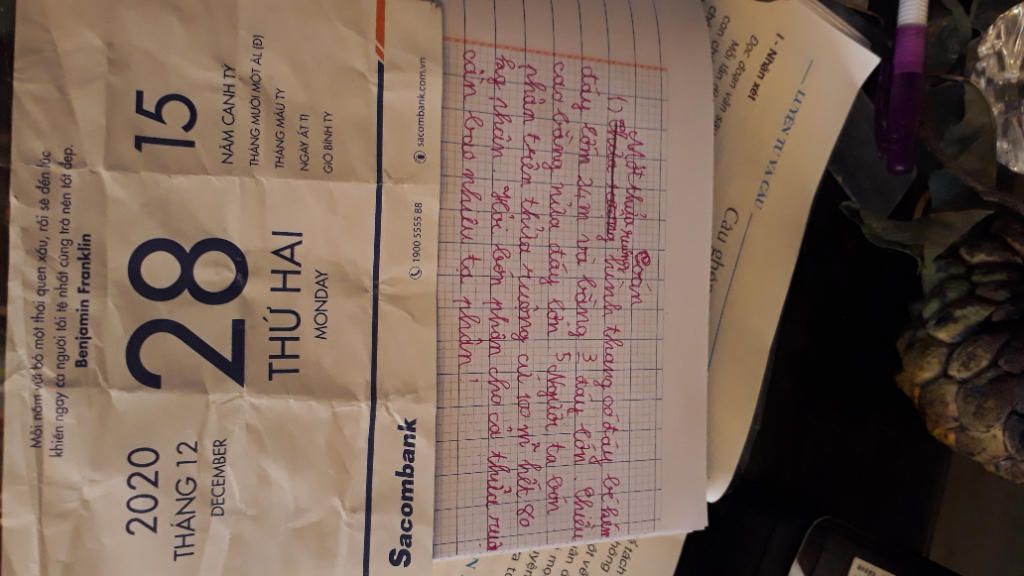 Mỗi năm vứt bỏ một thói quen xấu, rồi sẽ đến lúc
khiến ngay cả người tồi tệ nhất cũng trở nên tốt đẹp.
Benjamin Franklin
2020
THÁNG 12
DECEMBER
28
THỨ HAI
MONDAY
15
NĂM CANH TÝ
THÁNG MƯỜI MỘT ÂL (Đ)
THÁNG MẬU TÝ
NGÀY ẤT TỊ
GIỜ BÍNH TÝ
Sacombank
1900 5555 88
sacombank.com.vn
Toán
Một thửa ruộng
1) hình thang có đáy bé kém
đáy lớn 24m và bằng 3/5 đáy lớn. Chiều
cao bằng nửa đáy lớn. Người ta bón
phân trên thửa ruộng cứ 100 m² hết 80
kg phân. Hỏi bón phân cho cả thửa
cần bao nhiêu tạ phân?
LUYỆN TỪ VÀ CÂU
Câu ghép
I - Nhận xét
Đọc đoạn văn sau